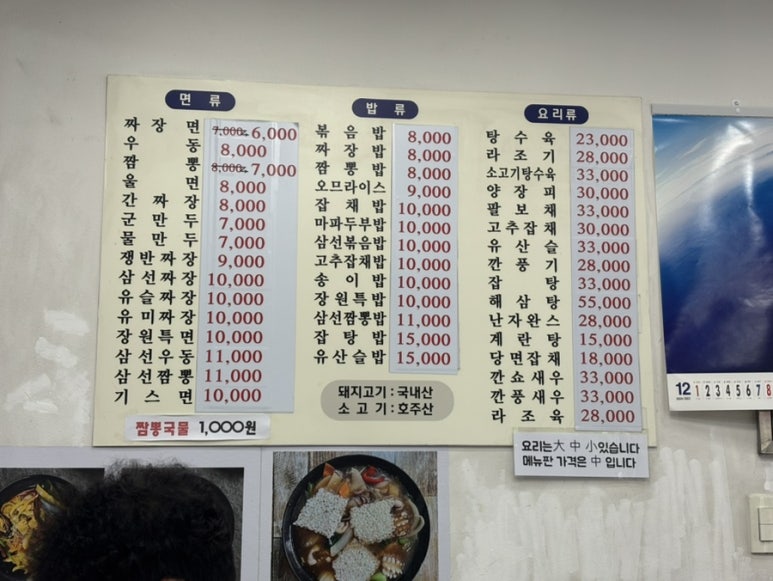 면 류
짜 장 면 7,000 6,000
우 동 8,000
짬 뽕 8,000 7,000
울 면 8,000
간 짜 장 8,000
군 만 두 7,000
물 만 두 7,000
쟁반짜장 9,000
삼선짜장 10,000
유슬짜장 10,000
유미짜장 10,000
장원특면 10,000
삼선우동 11,000
삼선짬뽕 11,000
기 스 면 10,000
짬뽕국물 1,000원
밥 류
볶 음 밥 8,000
짜 장 밥 8,000
짬 뽕 밥 8,000
오므라이스 9,000
잡 채 밥 10,000
마파두부밥 10,000
삼선볶음밥 10,000
고추잡채밥 10,000
송 이 밥 10,000
장원특밥 10,000
삼선짬뽕밥 11,000
잡 탕 밥 15,000
유산슬밥 15,000
돼지고기 : 국내산
소 고 기 : 호주산
요리류
탕 수 육 23,000
라 조 기 28,000
소고기탕수육 33,000
양 장 피 30,000
팔 보 채 33,000
고추잡채 30,000
유 산 슬 33,000
깐 풍 기 28,000
잡 탕 33,000
해 삼 탕 55,000
난자완스 28,000
계 란 탕 15,000
당면잡채 18,000
깐쇼새우 33,000
깐풍새우 33,000
라 조 육 28,000
요리는大 中 小있습니다
메뉴판 가격은 中 입니다
12 1 2 3 4 5 6 7 8